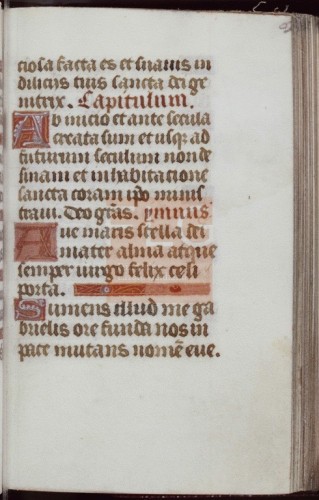 ciosa facta es et suauis in
diliciis tuis sancta dei ge
nitrix. Capitulum.
Ab inicio et ante secula
creata sum et usq; ad
futurum seculum non de
sinam et in habitacione
sancta coram ipo minis
traui. Deo gras. ymnus
Aue maris stella dei
mater alma atque
semper uirgo felix celi
porta.
Sumens illud me ga
brielis ore funda nos in
pace mutans nomē eue.